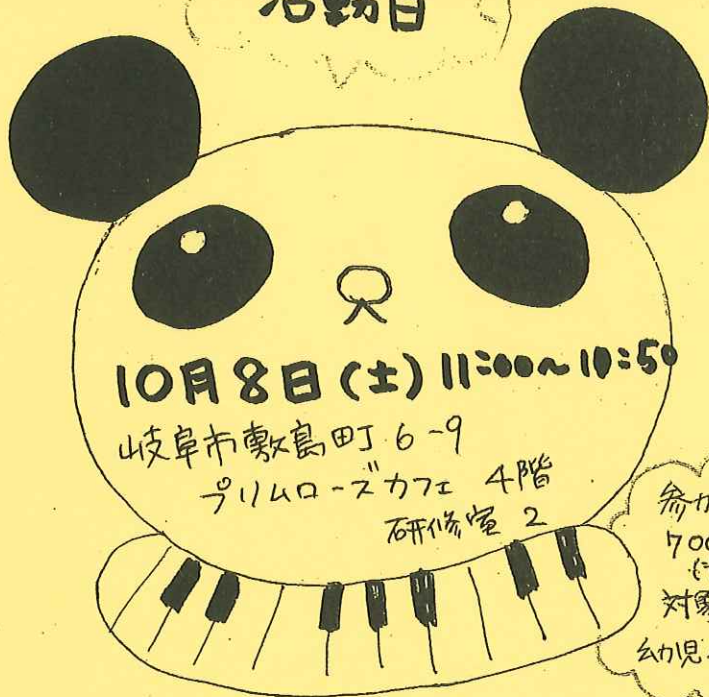 活動日
10月8日(土) 11:00~11:50
岐阜市敷島町6-9
プリムローズカフェ 4階
研修室 2
参加
700
対象
幼児